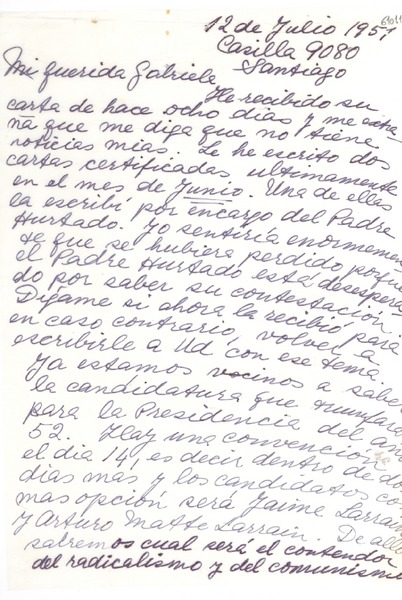 12 de Julio 1951
Casilla 9080
Santiago
Mi querida Gabriela
He recibido su
carta de hace ocho días y me extra-
ña que me diga que no tiene
noticias mias. Le he escrito dos
cartas certificadas, ultimamente
en el mes de Junio. Una de ellas
la escribí por encargo del Padre
Hurtado. Yo sentiría enormemen-
te que se hubiera perdido porque
el Padre Hurtado está desespera-
do por saber su contestación.
Dígame si ahora la recibió para
en caso contrario, volver a
escribirle a Ud con ese tema.
Ya estamos vecinos a saber
la candidatura que triunfará
para la Presidencia del año
52. Hay una convención
el dia 14, es decir dentro de dos
dias mas y los candidatos con
mas opción será Jaime Larrain
y Arturo Matte Larrain. De allí
sabremos cual será el contendor
del radicalismo y del comunismo